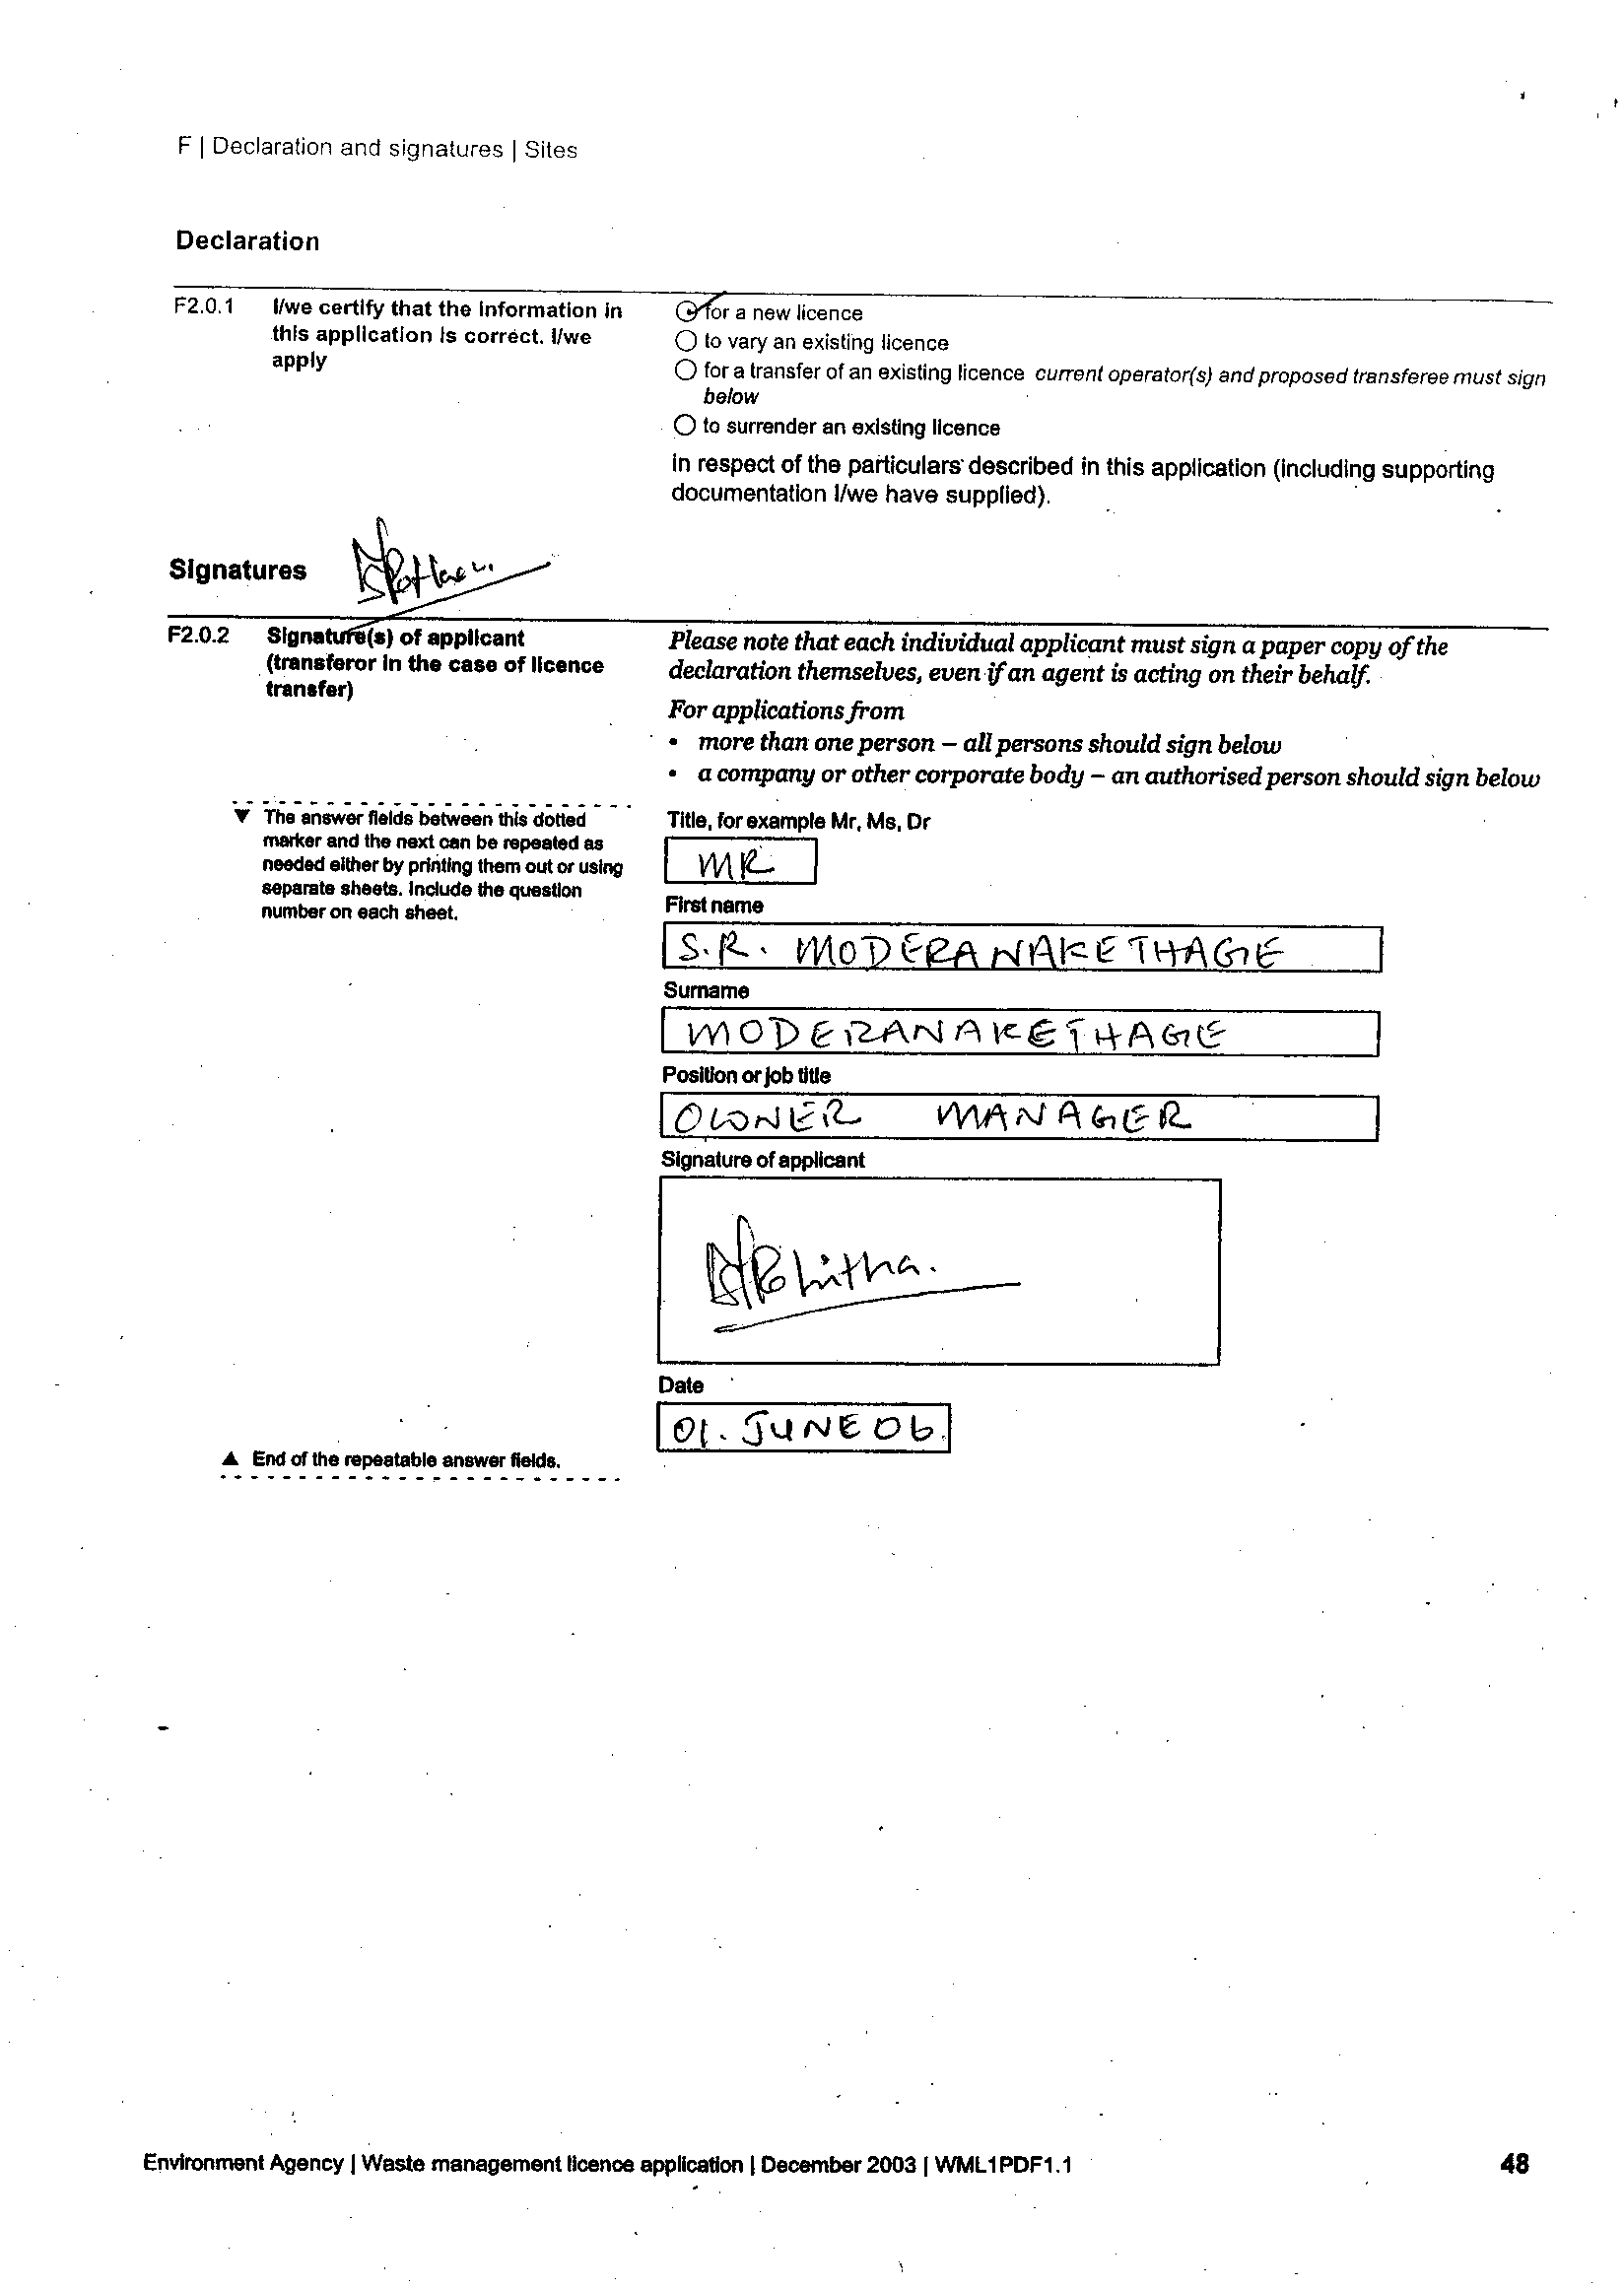 F | Declaration and signatures | Sites
Declaration
F2.0.1 I/we certify that the information in this application is correct. I/we apply
for a new licence
to vary an existing licence
for a transfer of an existing licence current operator(s) and proposed transferee must sign
below
to surrender an existing licence
in respect of the particulars described in this application (including supporting
documentation I/we have supplied).
Signatures
F2.0.2 Signature(s) of applicant
(transferor in the case of licence
transfer)
Please note that each individual applicant must sign a paper copy of the
declaration themselves, even if an agent is acting on their behalf.
For applications from
• more than one person – all persons should sign below
• a company or other corporate body – an authorised person should sign below
▼ The answer fields between this dotted
marker and the next can be repeated as
needed either by printing them out or using
separate sheets. Include the question
number on each sheet.
Title, for example Mr, Ms, Dr
MR
First name
S.R. MODERANAKETHAGE
Surname
MODERANAKETHAGE
Position or job title
OWNER MANAGER
Signature of applicant
Date
01. JUNE 06.
▲ End of the repeatable answer fields.
Environment Agency | Waste management licence application | December 2003 | WML1PDF1.1 48